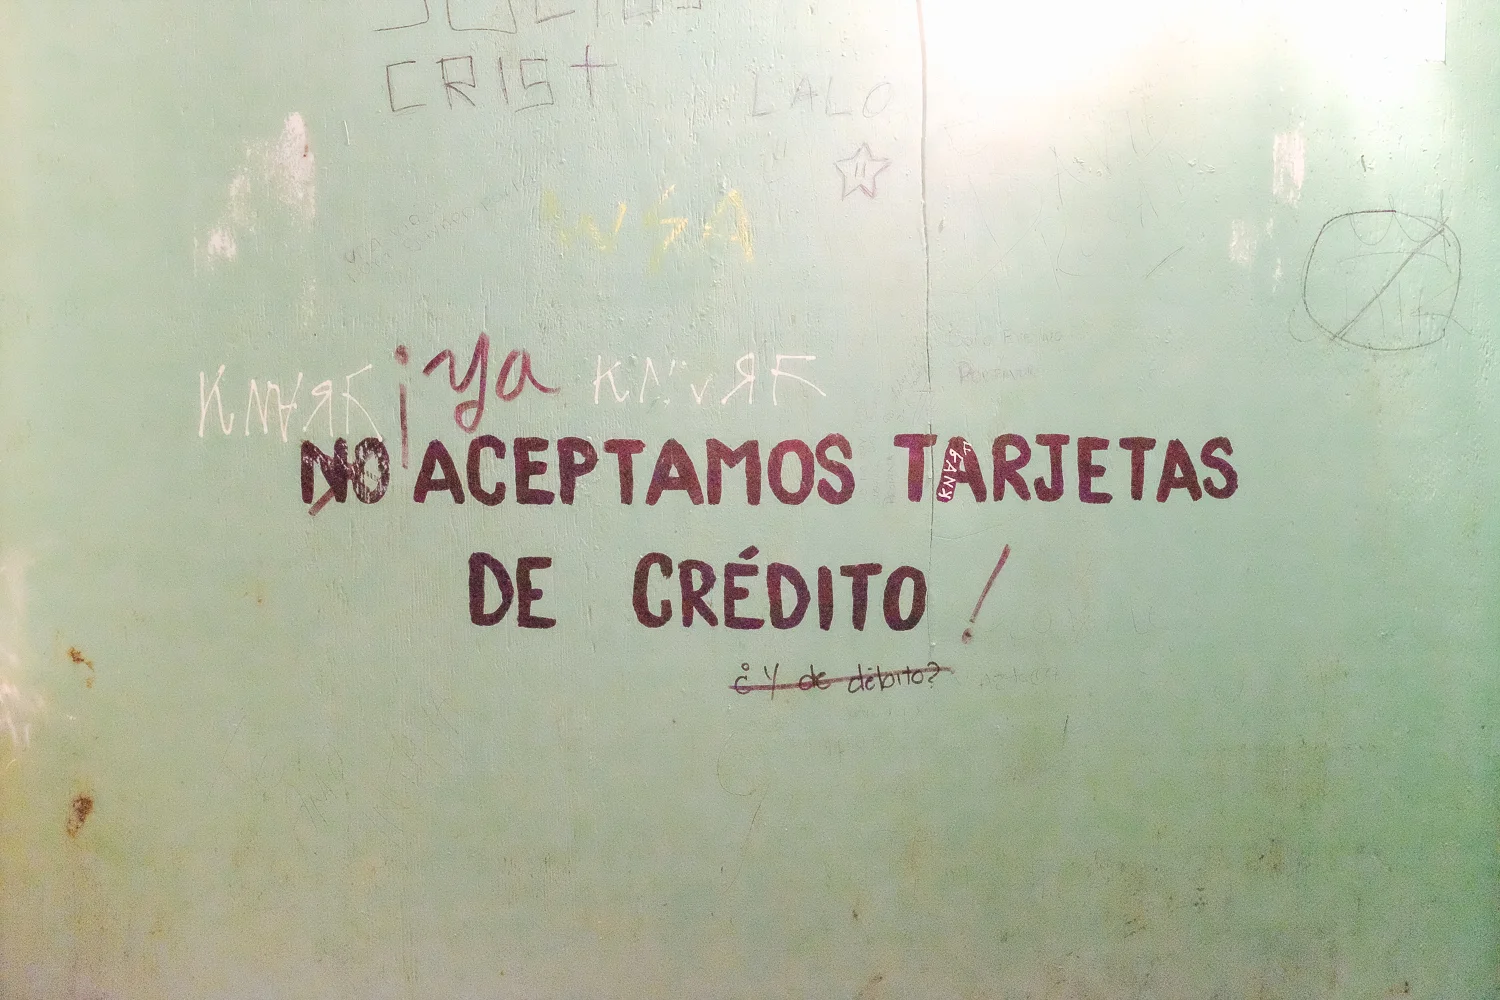 CRIST
LALO
WSA
KNARF ¡ya KNARF
NO ACEPTAMOS TARJETAS
KNARF
DE CRÉDITO !
¿Y de débito?